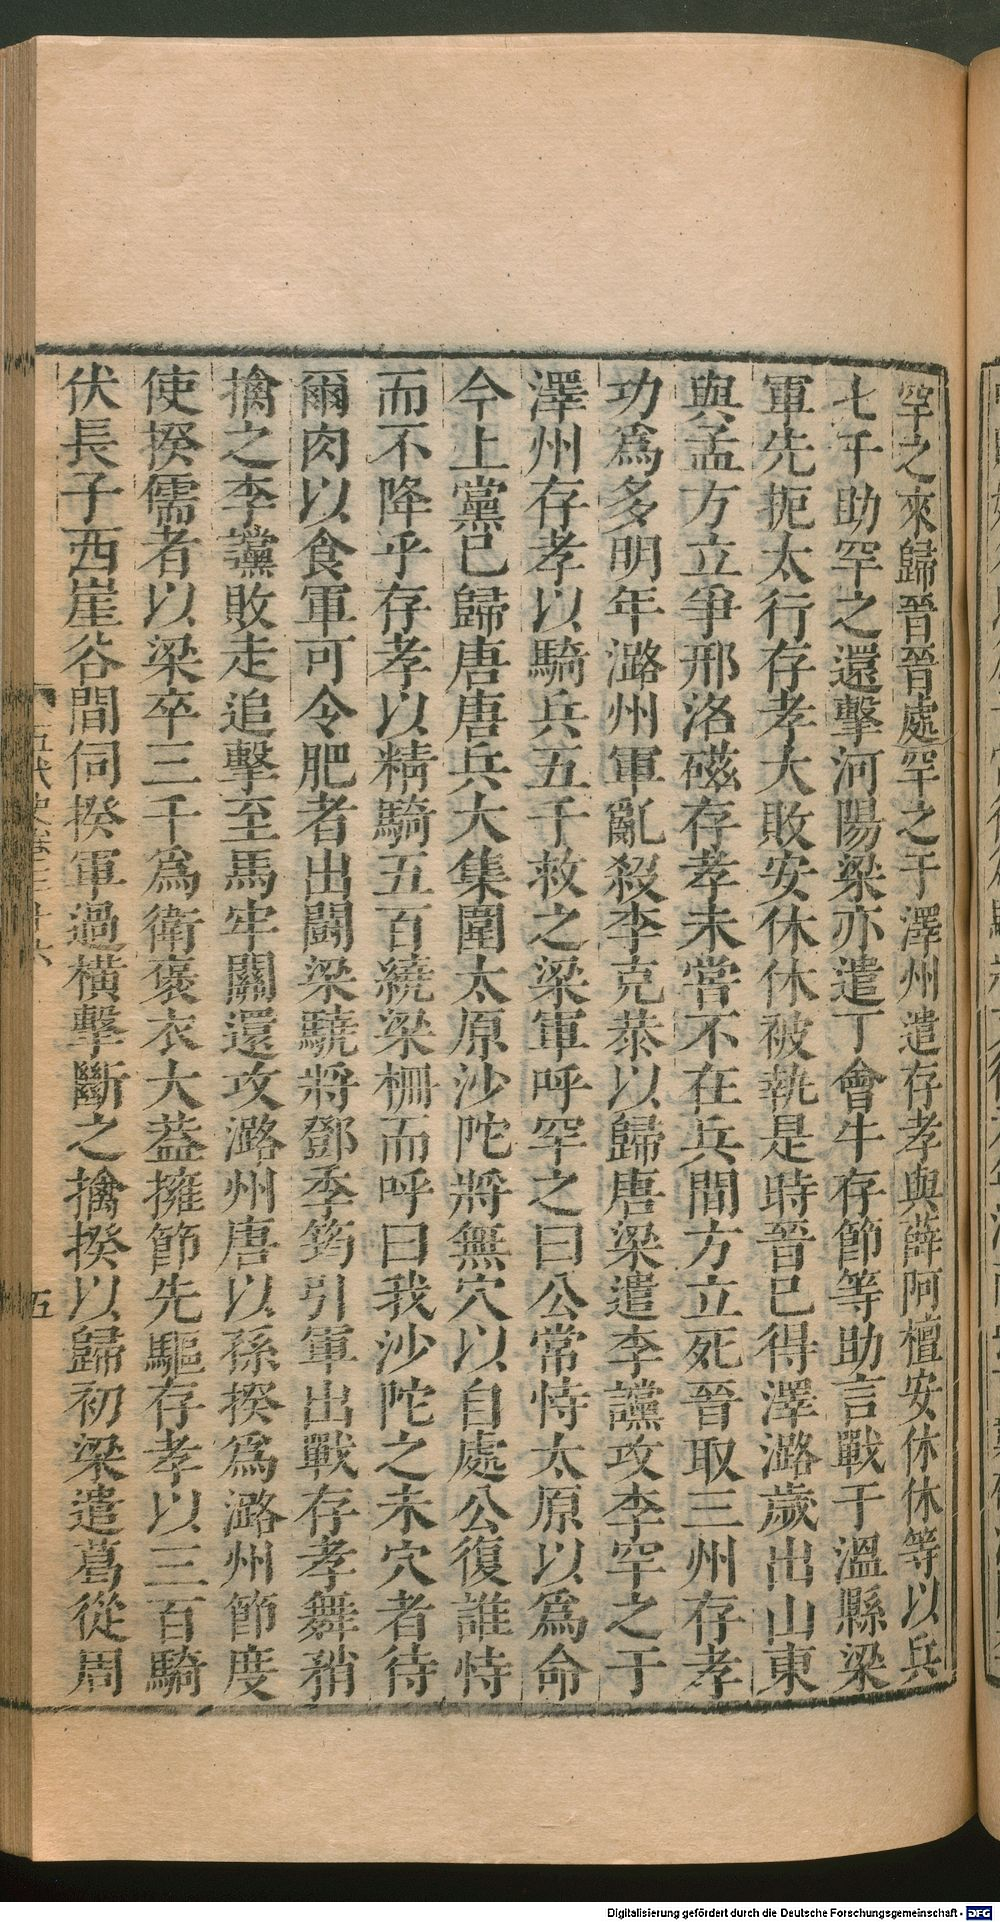 罕之來歸晉晉處罕之于澤州遣存孝與薛阿檀安休休等以兵
七千助罕之還擊河陽梁亦遣丁會牛存節等助言戰于溫縣梁
軍先扼太行存孝大敗安休休被執是時晉已得澤潞歲出山東
與孟方立爭邢洛磁存孝未嘗不在兵間方立死晉取三州存孝
功爲多明年潞州軍亂殺李克恭以歸唐梁遣李讜攻李罕之于
澤州存孝以騎兵五千救之梁軍呼罕之曰公常恃太原以爲命
今上黨已歸唐唐兵大集圍太原沙陀將無穴以自處公復誰恃
而不降乎存孝以精騎五百繞梁柵而呼曰我沙陀之未穴者待
爾肉以食軍可令肥者出鬭梁驍將鄧季筠引軍出戰存孝舞矟
擒之李讜敗走追擊至馬牢關還攻潞州唐以孫揆爲潞州節度
使揆儒者以梁卒三千爲衛褒衣大蓋擁節先驅存孝以三百騎
伏長子西崖谷間伺揆軍過橫擊斷之擒揆以歸初梁遣葛從周
五代史卷三十六
五
Digitalisierung gefördert durch die Deutsche Forschungsgemeinschaft - DFG